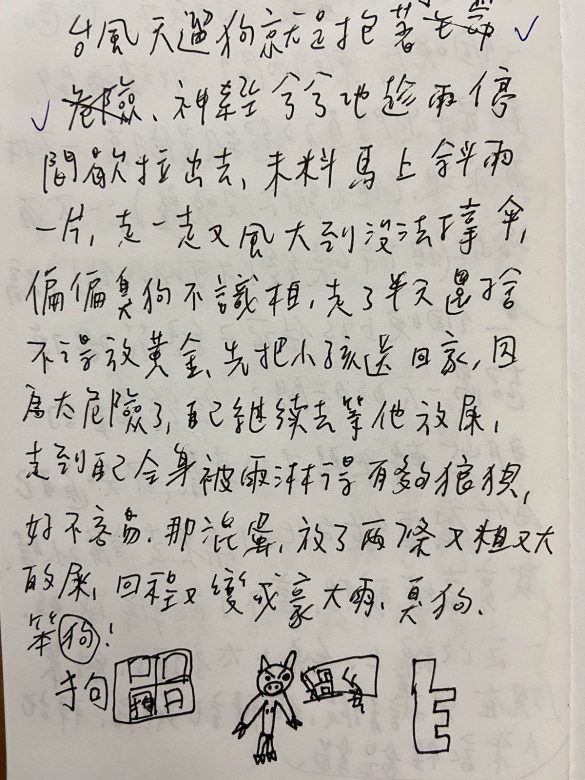 台風天遛狗就是抱著
危險、神經兮兮地趁雨停
間歇拉出去,未料馬上斜雨
一片,走一走又風大到沒法撐傘,
偏偏臭狗不識相,走了半天還捨
不得放黃金,先把小孩送回家,因
為太危險了,自己繼續去等他放屎,
走到自己全身被雨淋得有夠狼狽,
好不容易,那混蛋,放了兩條又粗又大
的屎,回程又變成豪大雨,臭狗、
笨狗!